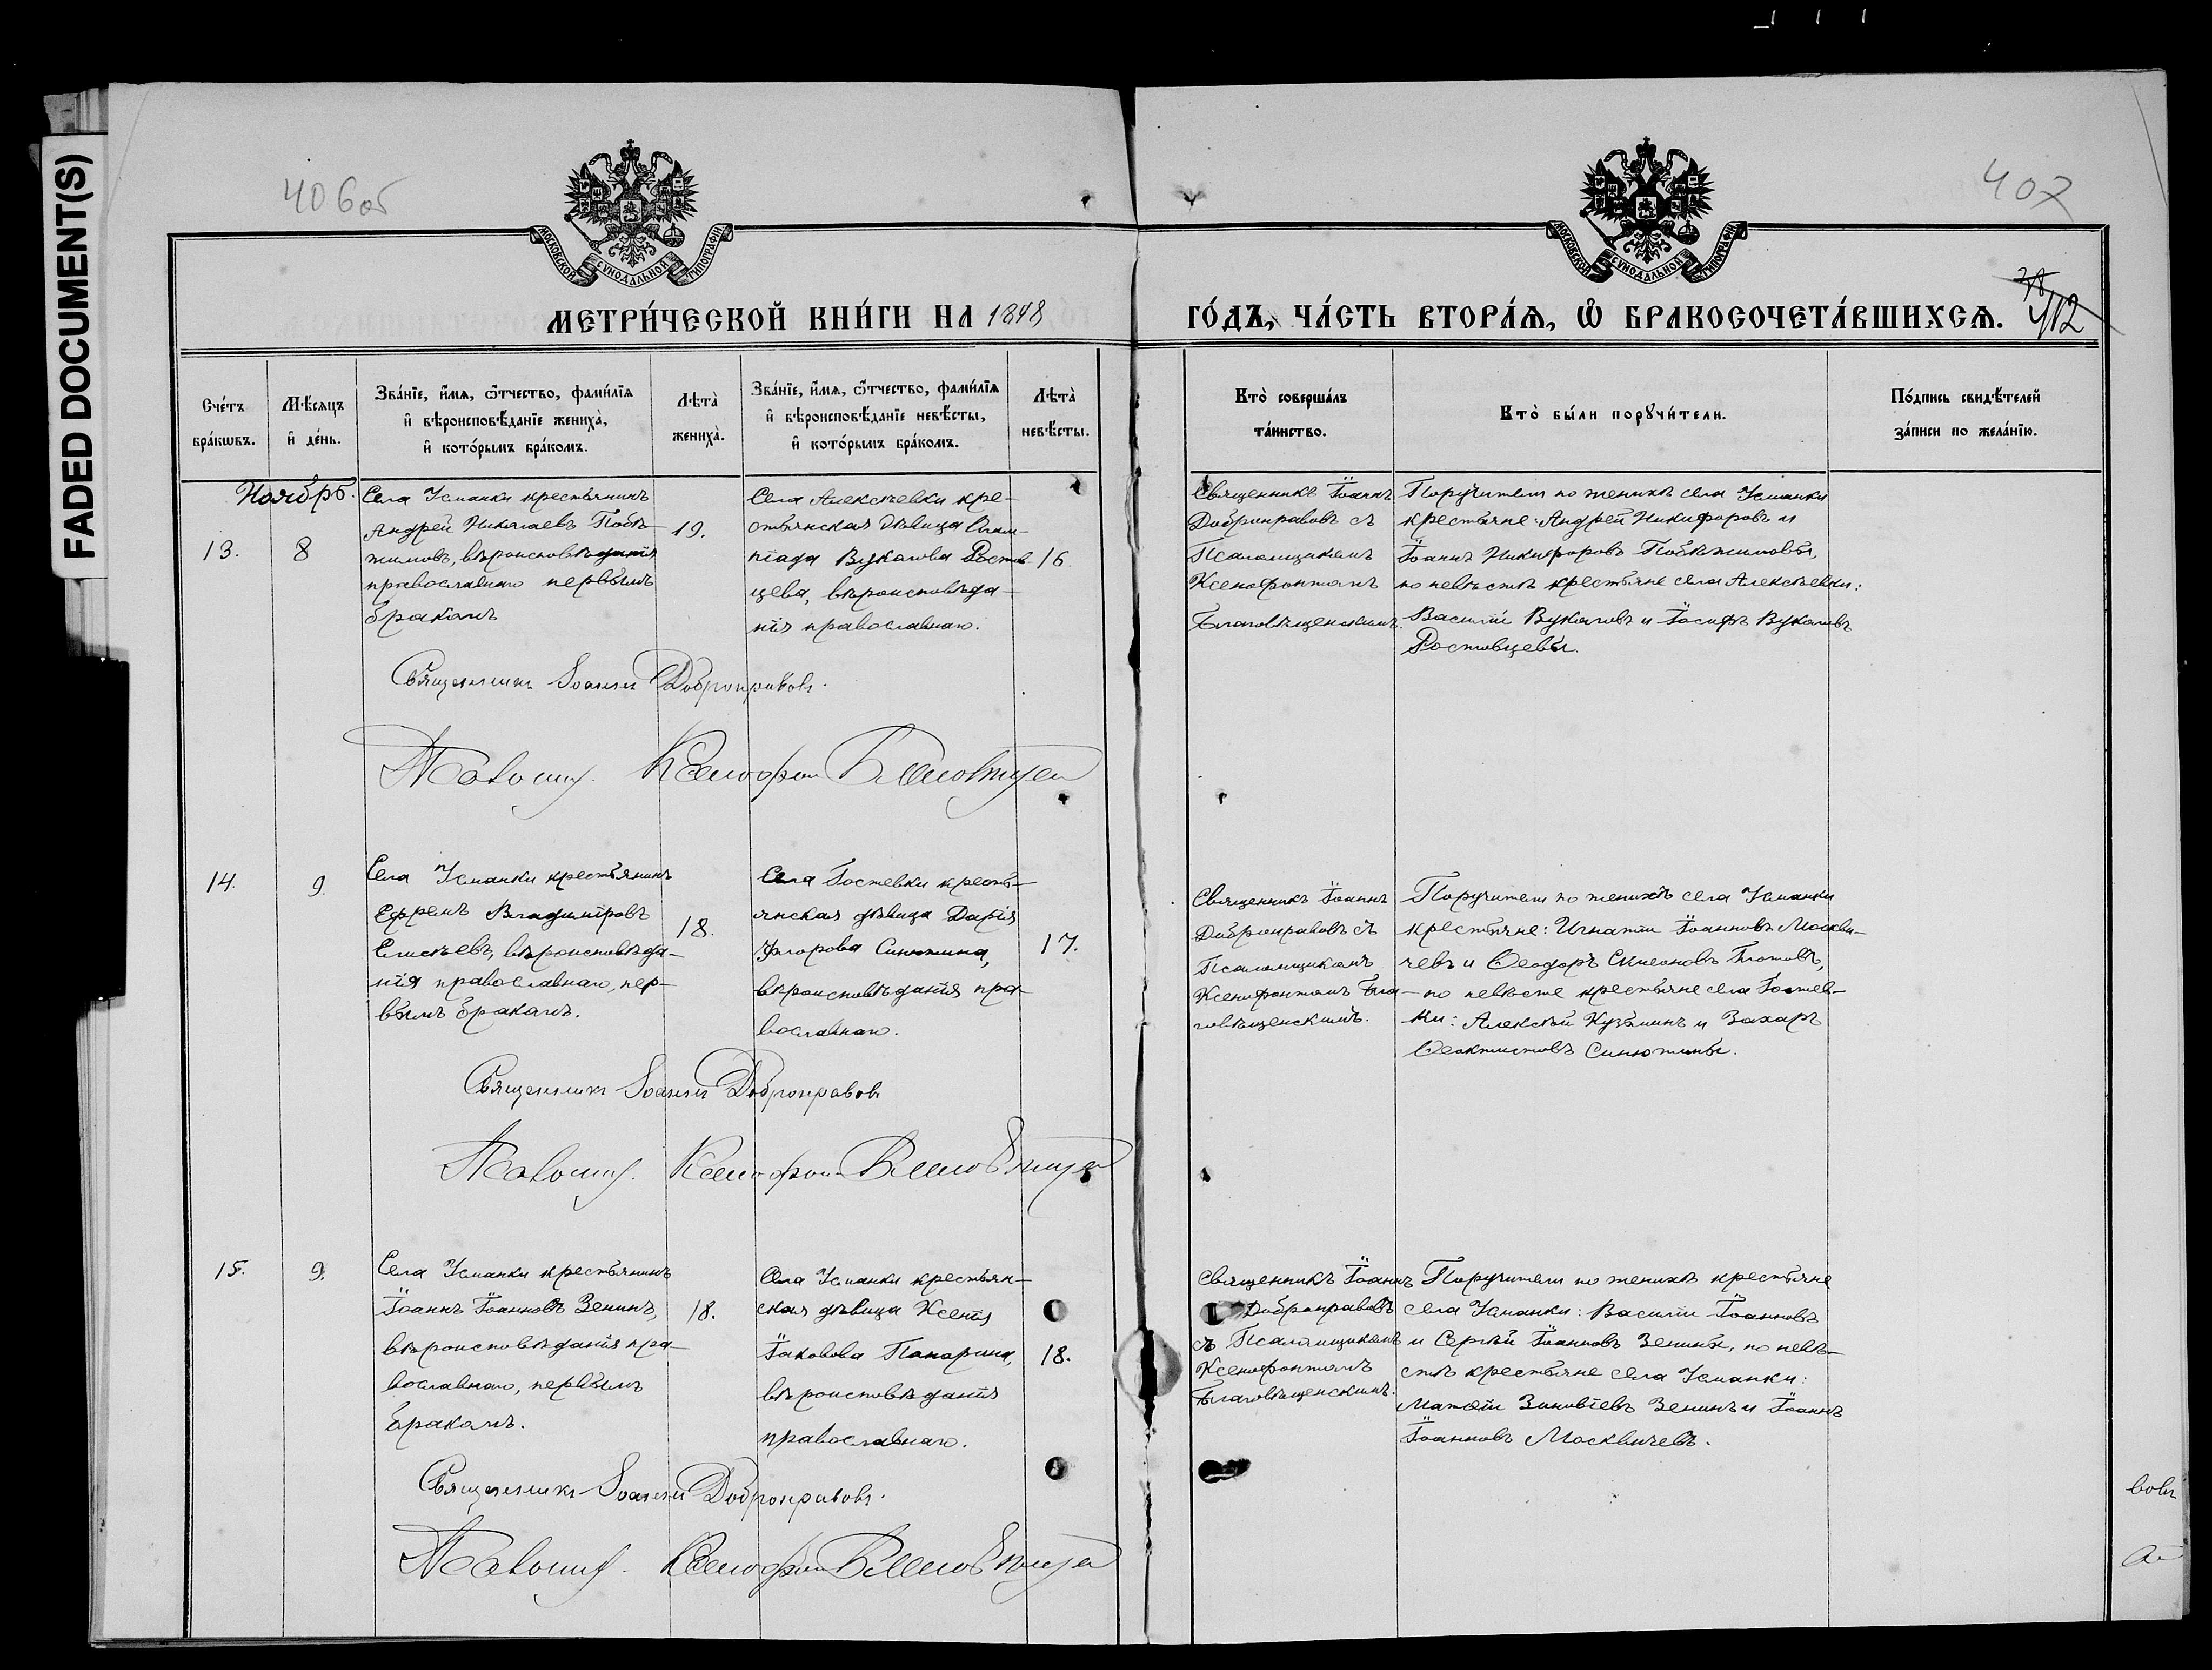 FADED DOCUMENT(S)
406 об
407
МОСКОВСКОЙ СѴНОДАЛЬНОЙ ТИПОГРАФІИ
МОСКОВСКОЙ СѴНОДАЛЬНОЙ ТИПОГРАФІИ
МЕТРИ́ЧЕСКОЙ КНИ́ГИ НА 1848
ГО́ДЪ, ЧА́СТЬ ВТОРА́Ѧ, Ѡ҆ БРАКОСОЧЕТА́ВШИХСѦ. 412
Сче́тъ бра́кѡвъ.
Мѣ́сѧцъ и҆ де́нь.
Зва́нїе, и҆́мѧ, ѻ҆́тчество, фами́лїѧ и҆ вѣроисповѣ́данїе жениха̀, и҆ кото́рымъ бра́комъ.
Лѣта̀ жениха̀.
Зва́нїе, и҆́мѧ, ѻ҆́тчество, фами́лїѧ и҆ вѣроисповѣ́данїе невѣ́сты, и҆ кото́рымъ бра́комъ.
Лѣта̀ невѣ́сты.
Кто̀ соверша́лъ та́инство.
Кто̀ бы́ли порꙋчи́тели.
По́дпись свидѣ́телей за́писи по жела́нїю.
Ноябрь.
13.
8
Села Усманки крестьянинъ
Андрей Николаевъ Побѣ-
жимовъ, вѣроисповѣданія
православнаго первымъ
бракомъ
19.
Села Алексѣевки кре-
стьянская дѣвица Олим-
піада Вуколова Ростов-
цева, вѣроисповѣда-
нія православнаго.
16.
Священникъ Іоаннъ
Добронравовъ съ
Псаломщикомъ
Ксенофонтомъ
Благовѣщенскимъ.
Поручители по женихѣ села Усманки
крестьяне: Андрей Никифоровъ и
Іоаннъ Никифоровъ Побѣжимовы,
по невѣстѣ крестьяне села Алексѣевки:
Василій Вуколовъ и Іосифъ Вуколовъ
Ростовцевы.
Священникъ Іоаннъ Добронравовъ.
Псаломщ. Ксенофон Благовѣщен
14.
9.
Села Усманки крестьянинъ
Ефремъ Владиміровъ
Елисѣевъ, вѣроисповѣда-
нія православнаго, пер-
вымъ бракомъ.
18.
Села Гостевки кресть-
янская дѣвица Дарія
Флорова Синютина,
вѣроисповѣданія пра-
вославнаго.
17.
Священникъ Іоаннъ
Добронравовъ съ
Псаломщикомъ
Ксенофонтомъ Бла-
говѣщенскимъ.
Поручители по женихѣ села Усманки
крестьяне: Игнатій Іоанновъ Москви-
чевъ и Ѳеодоръ Симеоновъ Глотовъ,
по невѣсте крестьяне села Гостев-
ки: Алексѣй Кузьминъ и Захаръ
Ѳеоктистовъ Синютины.
Священникъ Іоаннъ Добронравовъ
Псаломщ. Ксенофон Благовѣщен
15.
9.
Села Усманки крестьянинъ
Іоаннъ Іоанновъ Зенинъ,
вѣроисповѣданія пра-
вославнаго, первымъ
бракомъ.
18.
Села Усманки крестьян-
ская дѣвица Ксенія
Іаковова Панарина,
вѣроисповѣданія
православнаго.
18.
Священникъ Іоаннъ
Добронравовъ
съ Псаломщикомъ
Ксенофонтомъ
Благовѣщенскимъ.
Поручители по женихѣ крестьяне
села Усманки: Василій Іоанновъ
и Сергѣй Іоанновъ Зенины, по невѣ-
стѣ крестьяне села Усманки:
Матѳій Зиновіевъ Зенинъ и Іоаннъ
Іоанновъ Москвичевъ.
Священникъ Іоаннъ Добронравовъ.
Псаломщ. Ксенофон Благовѣщен
вовъ